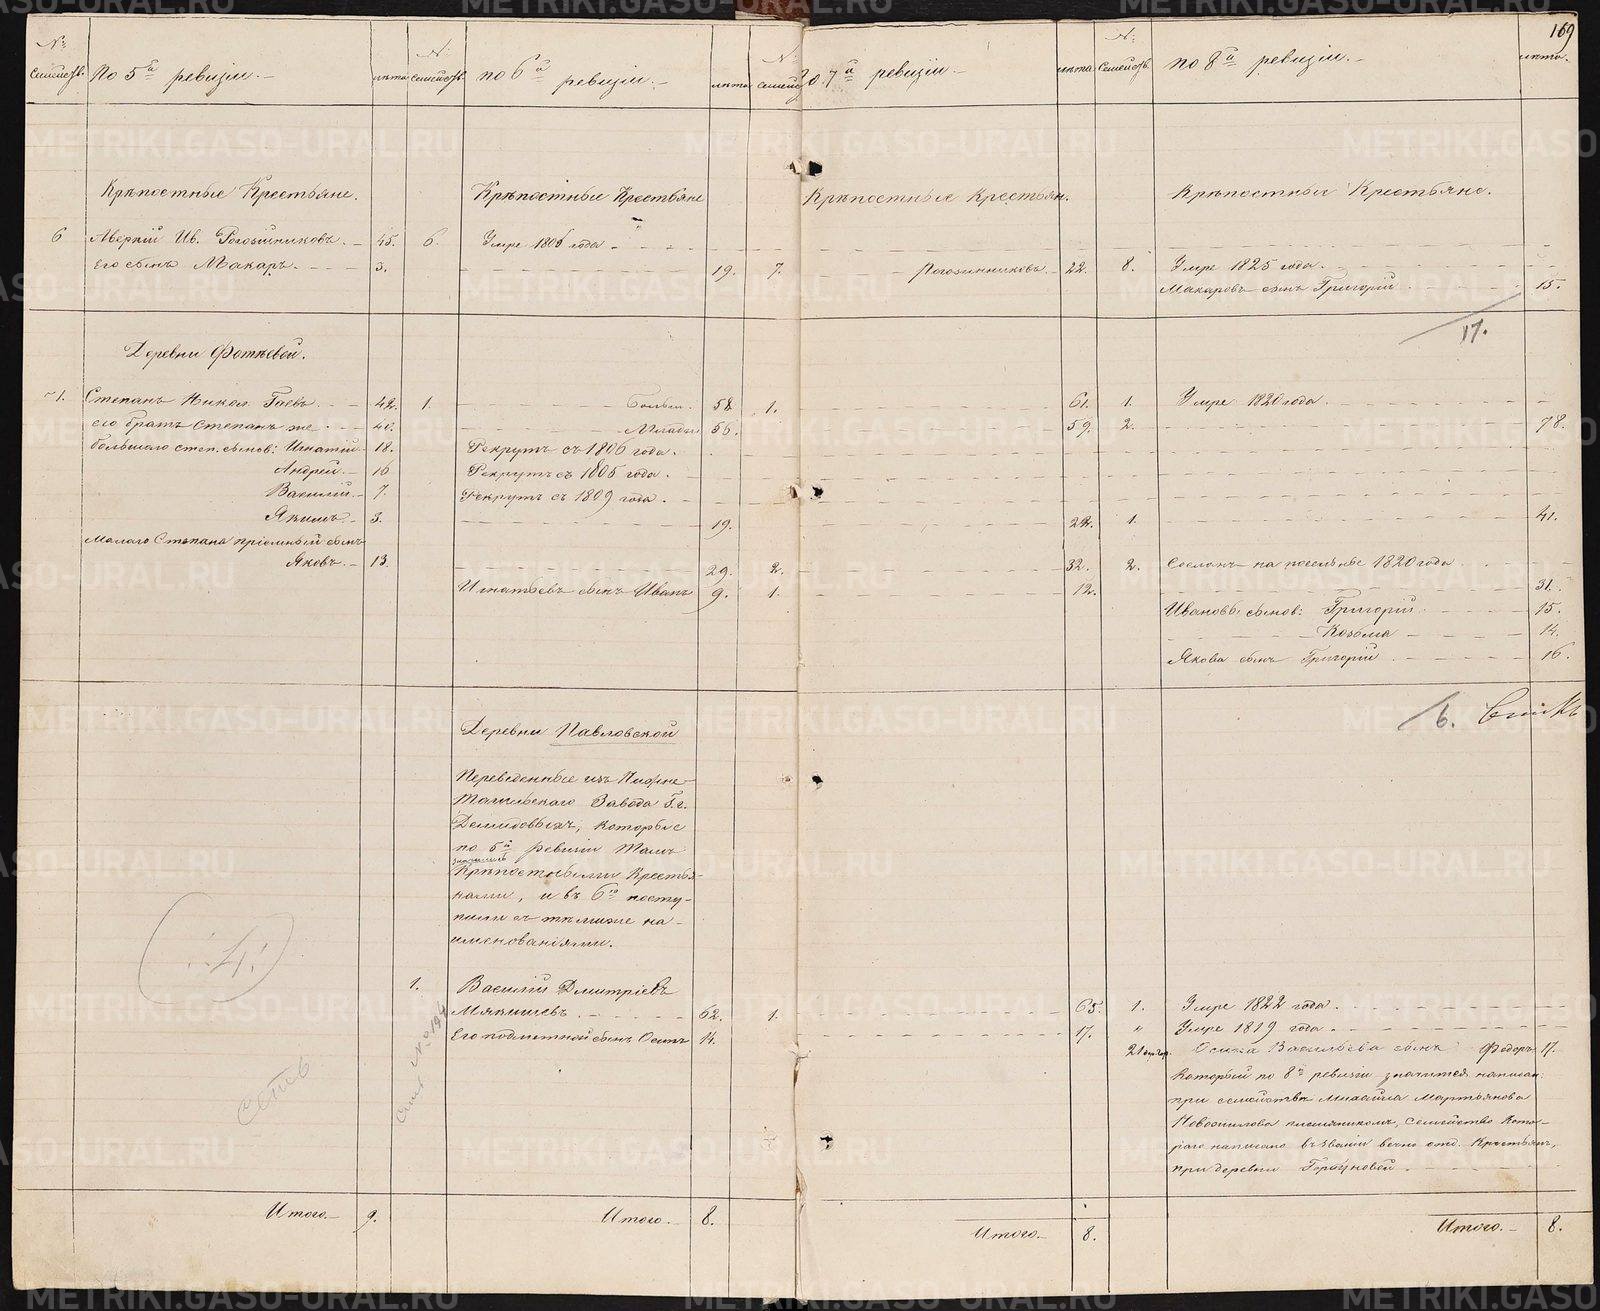 169
№ семейств.
По 5й ревизіи.
лѣта
№ семейств.
по 6й ревизіи.
лѣта
№ семейс
По 7й ревизіи.
лѣта
№ семейств.
по 8й ревизіи.
лѣта.
Крѣпостные Крестьяне.
Крѣпостные Крестьяне
Крѣпостные Крестьян.
Крѣпостные Крестьяне.
6 Аверкій Ив. Рогозинниковъ. 45. 6. Умре 1805 года
его сынъ Макаръ. 3. 19. 7. Рогозинниковъ 22. 8. Умре 1825 года.
Макаровъ сынъ Григорій 15.
17.
Деревни Фотѣевой.
1. Степанъ Никол. Гаевъ. 42. 1. Больш. 58 1. 61. 1. Умре 1820 года.
его братъ Степанъ же 40. Младш 56. 59. 2. 78.
большаго степ. сынов: Игнатій 18. Рекрутъ съ 1806 года.
Андрей. 16 Рекрутъ съ 1805 года.
Василій. 7. Рекрутъ съ 1809 года.
Якимъ. 3. 19. 22. 1. 41.
Малаго Степана пріемный сынъ
Яковъ. 13. 29. 2. 32. 2. Сосланъ на поселенье 1820 года
Игнатьевъ сынъ Иванъ 9. 1. 12. 31.
Ивановы сынов: Григорій 15.
Козьма 14.
Якова сынъ Григорій 16.
6.
Деревни Павловской
Переведенные изъ Нижне-
Тагильскаго Завода Г.г.
Демидовыхъ, которые
по 5й ревизіи тамъ
значились
Крѣпостными Крестья-
нами, и въ 6ю посту-
пили съ тѣмиже на-
именованіями.
4
1. Василій Дмитріевъ
Мякишевъ. 62. 1. 65. 1. Умре 1822 года.
Его подметной сынъ Осипъ 14. 17. " Умре 1819 года.
21 Осипа Васильева сынъ Федоръ 17.
который по 8й ревизіи значится написан:
при семействѣ Михайла Мартьянова
Новожилова племянникомъ, семейство кото-
раго написано въ званіи вечно отд. Крестьян,
при деревни
Итого. 9. Итого. 8. Итого. 8. Итого. 8.